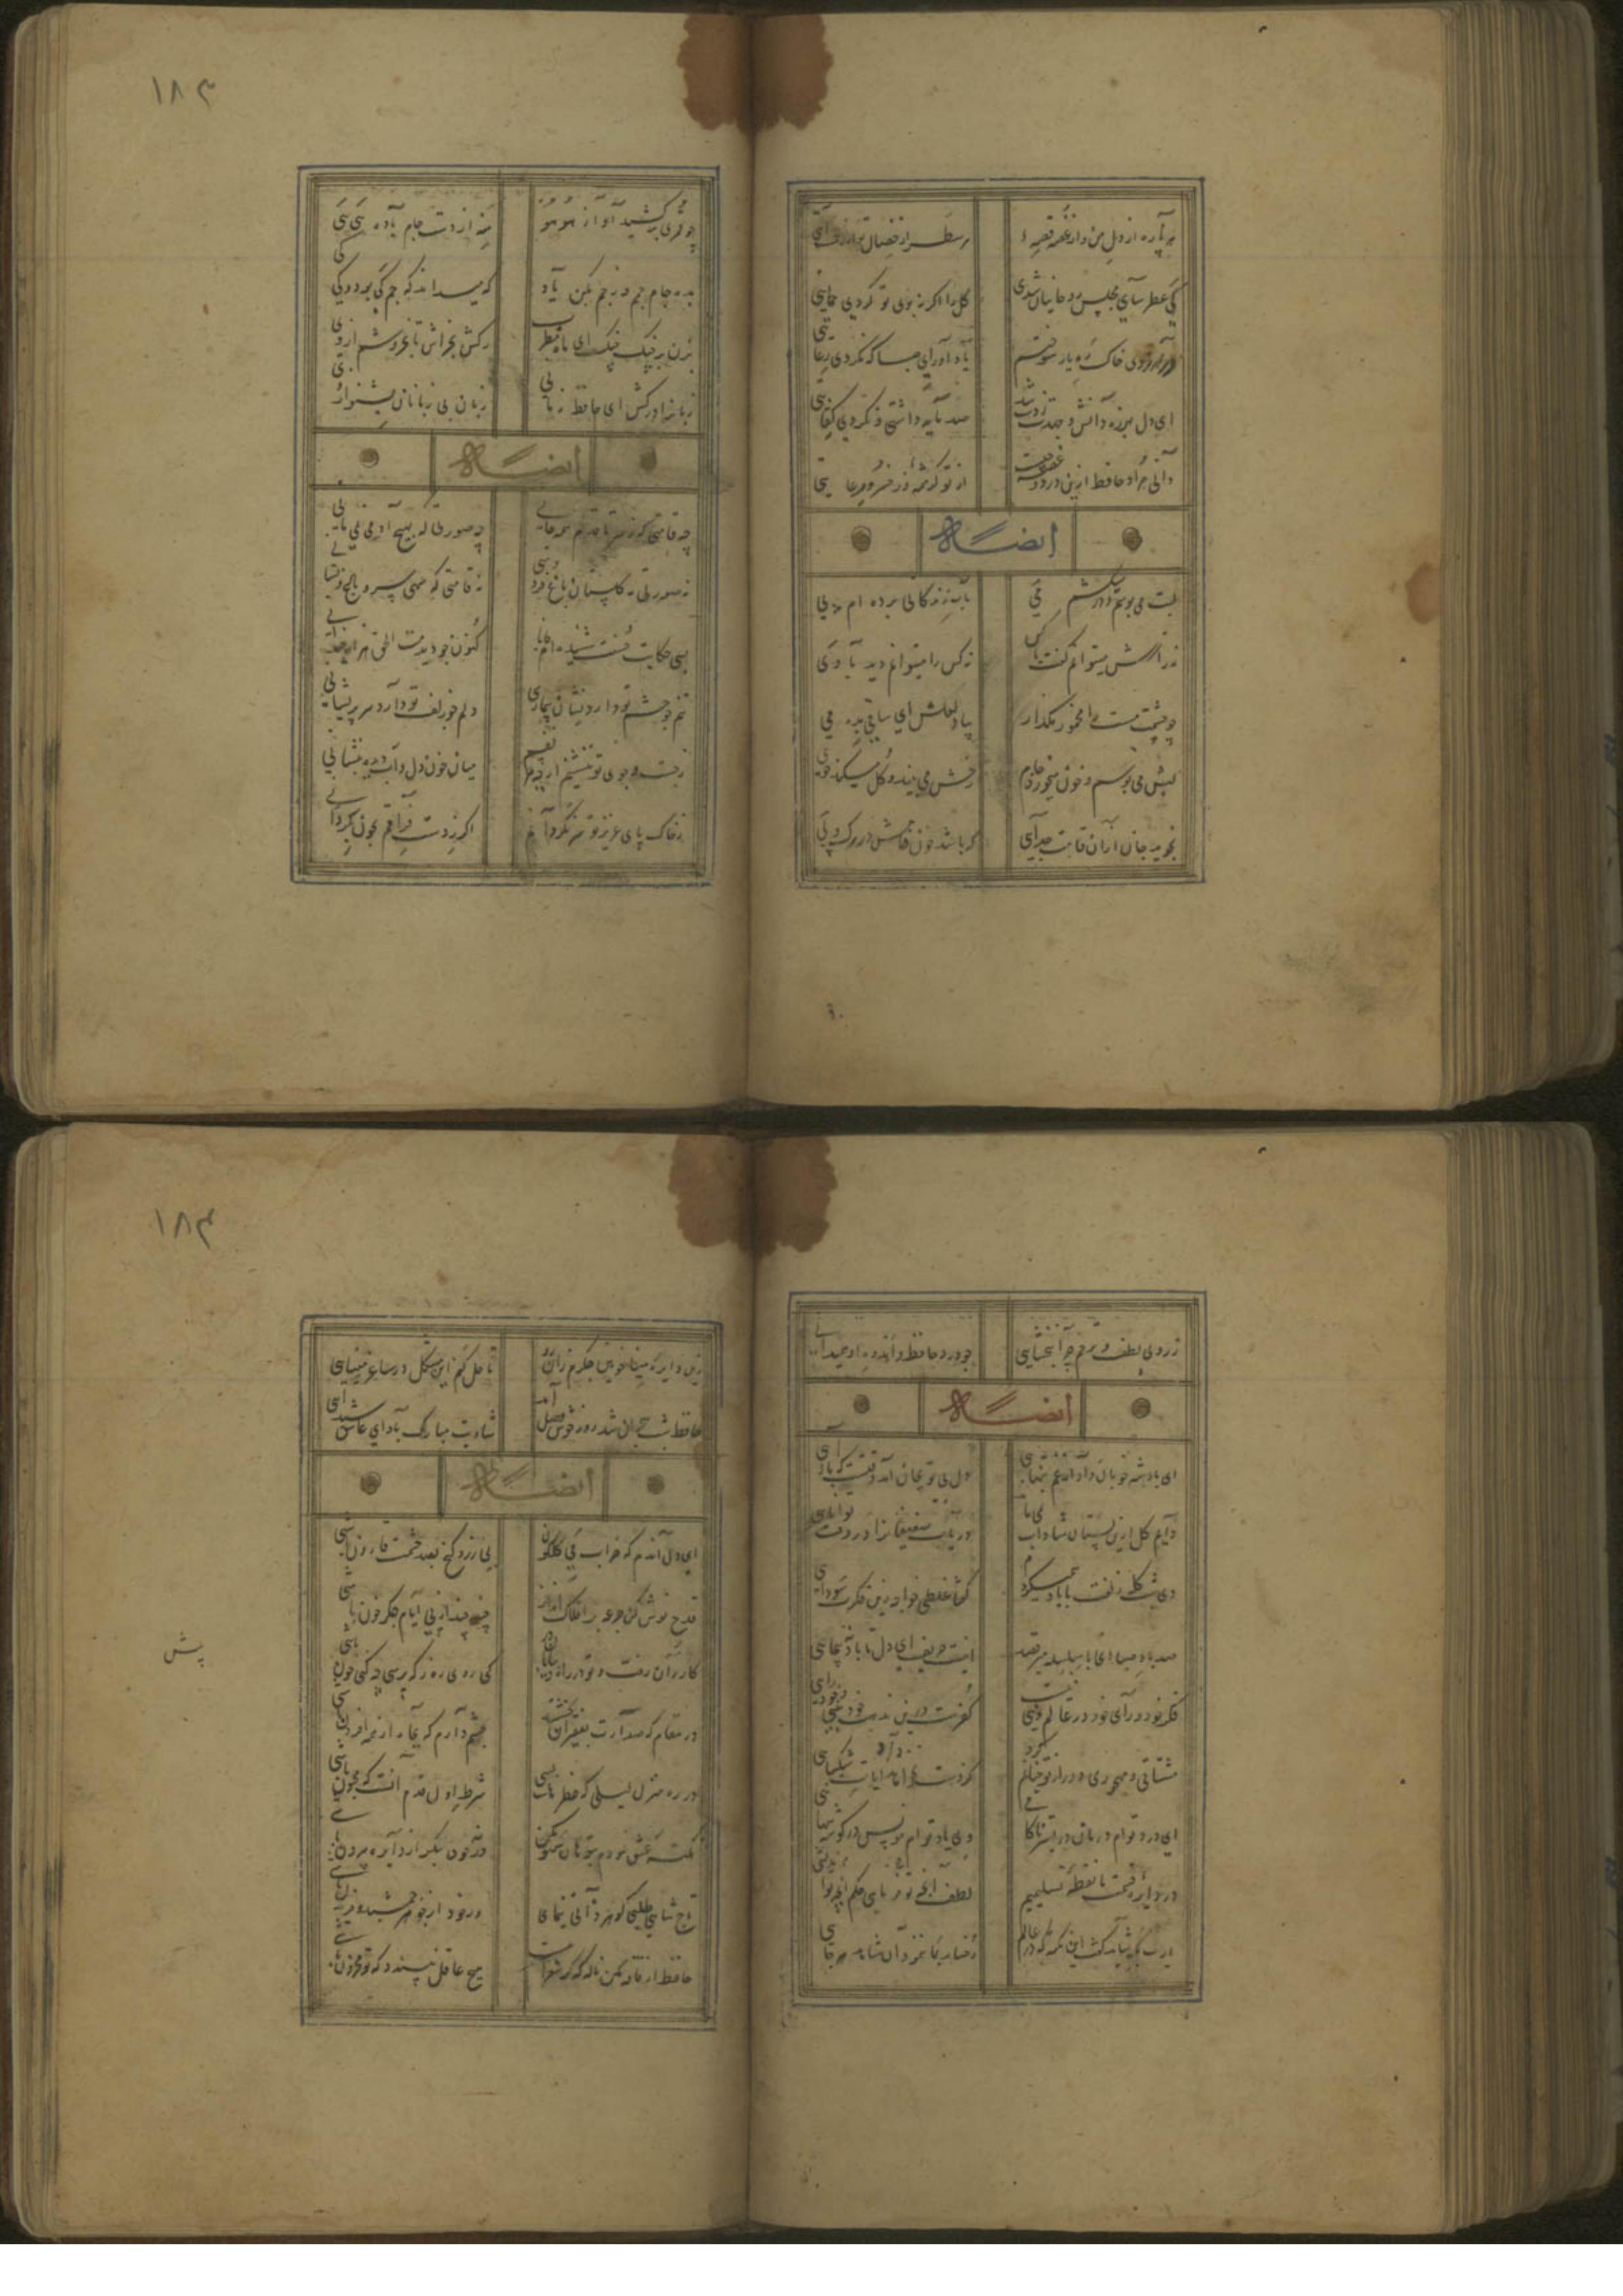 هر پاره از دل من و از غصه قصهٔ
هر سطر از خصال تو از رحمت آیتی
کی عطر سای مجلس روحانیان شدی
گل را اگر نه بوی تو کردی حمایتی
در آرزوی خاک ره یار سوختیم
یاد آور ای صبا که نکردی رعایتی
ای دل بهرزه دانش و عمرت ز دست شد
صد مایه داشتی و نکردی کفایتی
دانی مراد حافظ ازین درد و غصه چیست
از تو کرشمهٔ و ز خسرو عنایتی
ایضاً له
لبت می بوسم و در میکشم می
بآب زندگانی برده ام پی
نه رازش میتوانم گفت با کس
نه کس را میتوانم دید با وی
چو چشمت مست را مخمور مگذار
بیاد لعلش ای ساقی بده می
لبش می بوسد و خون میخورد جام
رخش می بیند و گل میکند خوی
نجوید جان از آن قالب جدایی
که باشد خون جامش در رگ و پی
۱۸۳
چو قمری برکشید آواز هوهو
منه از دست جام باده هی هی
بده جام جم و از جم مکن یاد
که میداند که جم کی بود و کی کی
بزن بر چنگ چنگ ای ماه مطرب
رگش بخراش تا بخروشم از وی
زبانت درکش ای حافظ زمانی
زبان بی زبانان بشنو از نی
ایضاً له
چه قامتی که ز سر تا قدم همه جانی
چه صورتی که بهیچ آدمی نمی مانی
نه صورتی که گلستان باغ فردوسی
نه قامتی که سهی سرو باغ و بستانی
بسی حکایت حسنت شنیده ام جانا
کنون چو دیدمت الحق هزار چندانی
تنم چو چشم تو دارد نشان بیماری
دلم چو زلف تو دارد سر پریشانی
ز جست و جوی تو ننشینم ار چه هر نفسم
میان خون دل و آب دیده بنشانی
ز خاک پای عزیز تو سر نگردانم
اگر ز دست فراقم بخون بگردانی
ز روی لطف و ترحم چرا نبخشایی
چو درد حافظ و اندوه او همیدانی
ایضاً له
ای پادشه خوبان داد از غم تنهایی
دل بی تو بجان آمد وقتست که بازآیی
دایم گل این بستان شاداب نمی ماند
دریاب ضعیفانرا در وقت توانایی
دی شب گله زلفت با باد همیکردم
گفتا غلطی خواجه زین فکرت سودایی
صد باد صبا آنجا با سلسله میرقصد
اینست حریف ای دل تا باد نپیمایی
فکر خود و رای خود در عالم رندی نیست
کفرست درین مذهب خودبینی و خودرایی
مشتاقی و مهجوری دور از تو چنانم کرد
کز دست نخواهد شد پایاب شکیبایی
ای درد توام درمان در بستر ناکامی
وی یاد توام مونس در گوشهٔ تنهایی
در دایرهٔ قسمت ما نقطهٔ تسلیمیم
لطف آنچه تو فرمایی حکم آنچه تو اندیشی
یارب بکه شاید گفت این نکته که در عالم
رخساره بکس ننمود آن شاهد هرجایی
۱۸۴
زین دایره مینا خونین جگرم می ده
تا حل کنم این مشکل در ساغر مینایی
حافظ شب هجران شد روز خوش وصل آمد
شادیت مبارک باد ای عاشق شیدایی
ایضاً له
ای دل آندم که خراب از می گلگون باشی
بی زر و گنج بصد حشمت قارون باشی
قدحی نوش کن و جرعه بر افلاک انداز
چند چند از پی ایام جگر خون باشی
کاروان رفت و تو در راه بیابان در خواب
کی روی ره ز که پرسی چه کنی چون باشی
در مقامی که صدارت بفقیران بخشند
چشم دارم که بجاه از همه افزون باشی
در ره منزل لیلی که خطرهاست بسی
شرط اول قدم آنست که مجنون باشی
نکتهٔ عشق نمودم بتو هان سهو مکن
ورنه چون بنگری از دایره بیرون باشی
تاج شاهی طلبی گوهر ذاتی بنمای
ور خود از گوهر جمشید و فریدون باشی
حافظ از فاقه مکن ناله که گر شعر اینست
هیچ عاقل نپسندد که تو محزون باشی